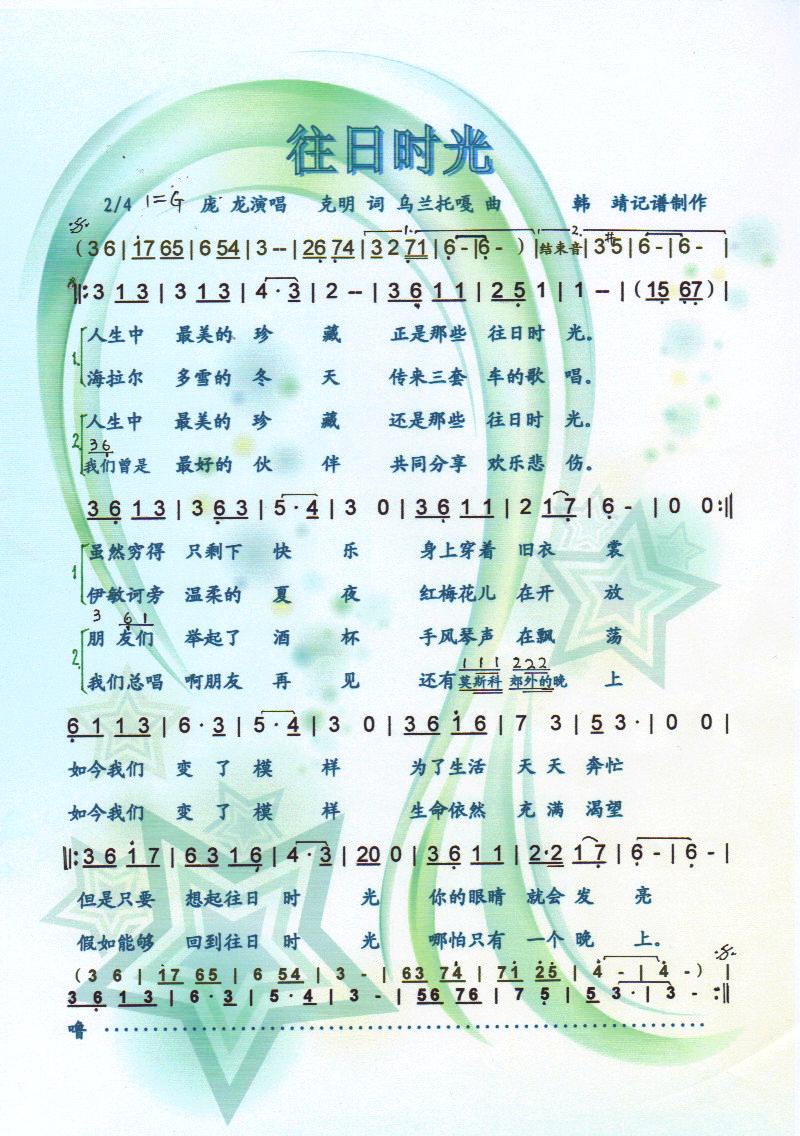 往日时光
2/4 1=G 庞 龙演唱 克明 词 乌兰托嘎 曲 韩 靖记谱制作
(3 6 | 17 65 | 6 54 | 3 -- | 26 74 | 3 2 71 | 6 - | 6 - ) | 结束音 | 3 #5 | 6 - | 6 - |
1. 2.
‖: 3 1 3 | 3 1 3 | 4 · 3 | 2 -- | 3 6 1 1 | 2 5 1 | 1 -- | (15 67) |
1. 人生中 最美的 珍 藏 正是那些 往日时 光。
海拉尔 多雪的 冬 天 传来三套 车的歌 唱。
2. 人生中 最美的 珍 藏 还是那些 往日时 光。
3 6
我们曾是 最好的 伙 伴 共同分享 欢乐悲 伤。
3 6 1 3 | 3 6 3 | 5 · 4 | 3 0 | 3 6 1 1 | 2 1 7 | 6 - | 0 0 :‖
1 虽然穷得 只剩下 快 乐 身上穿着 旧衣 裳
伊敏诃旁 温柔的 夏 夜 红梅花儿 在开 放
3 6 1
2. 朋 友们 举起了 酒 杯 手风琴声 在飘 荡
1 1 1 2 2 2
我们总唱 啊朋友 再 见 还有莫斯科 郊外的晚 上
6 1 1 3 | 6 · 3 | 5 · 4 | 3 0 | 3 6 1 6 | 7 3 | 5 3 · | 0 0 |
如今我们 变 了 模 样 为了生活 天 天 奔忙
如今我们 变 了 模 样 生命依然 充 满 渴望
‖: 3 6 1 7 | 6 3 1 6 | 4 · 3 | 20 0 | 3 6 1 1 | 2·2 1 7 | 6 - | 6 - |
但是只要 想起往日 时 光 你的眼睛 就会 发 亮
假如能够 回到往日 时 光 哪怕只有 一个 晚 上。
(3 6 | 17 65 | 6 54 | 3 - | 63 74 | 71 25 | 4 - | 4 - ) |
3 6 1 3 | 6 · 3 | 5 · 4 | 3 - | 56 76 | 7 5 | 5 3 · | 3 - :‖
噜 ··········